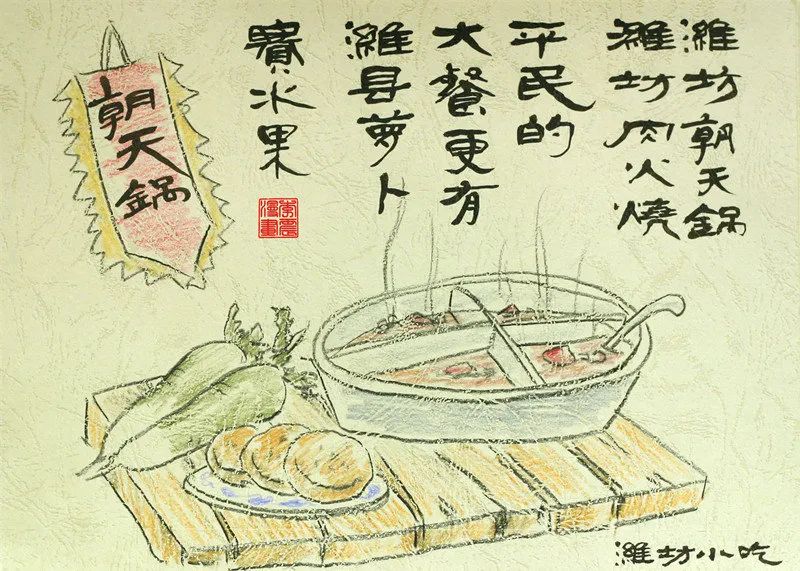 濰坊朝天鍋
濰坊肉火燒
平民的
大餐更有
濰县萝卜
賽水果
朝天鍋
漫畫
濰坊小吃